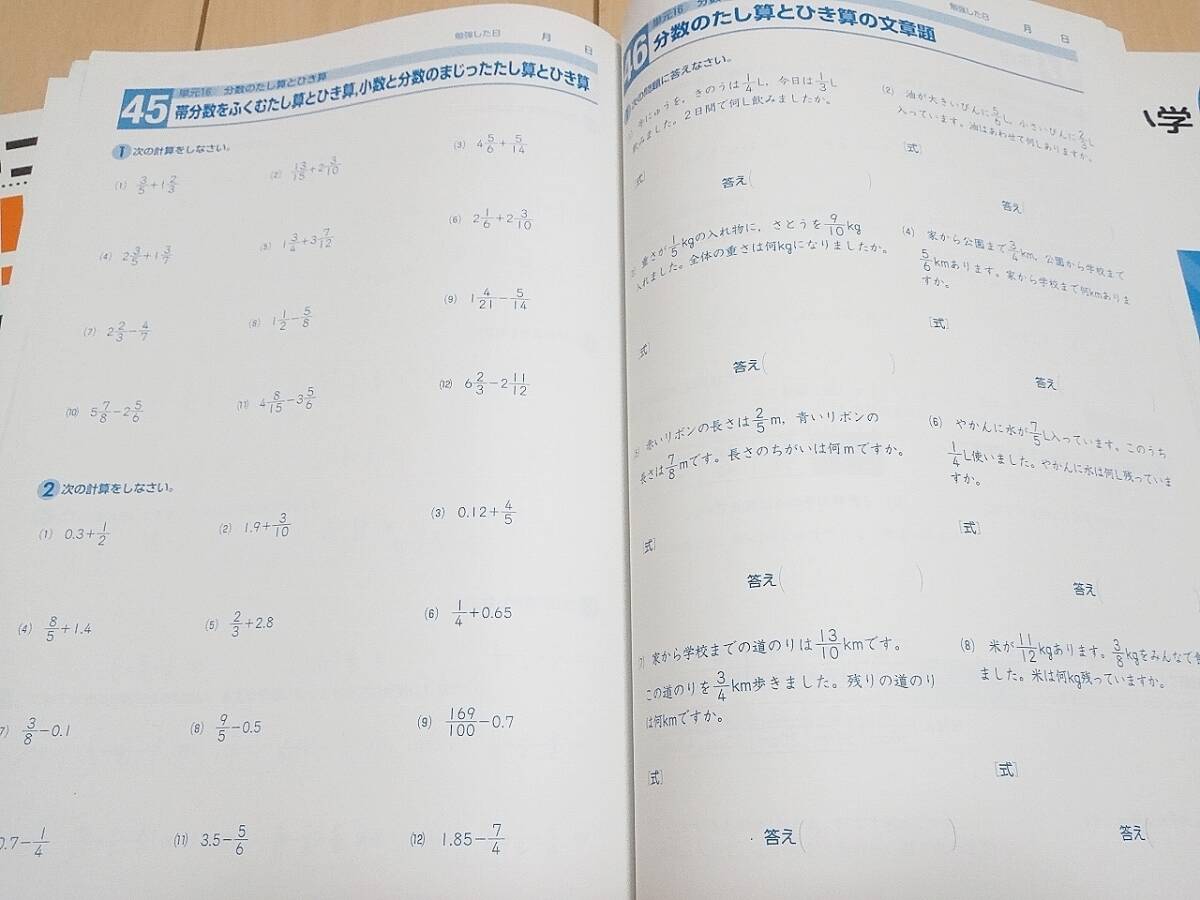 勉強した日 月 日
単元16 分数のたし算とひき算
45 帯分数をふくむたし算とひき算,小数と分数のまじったたし算とひき算
1 次の計算をしなさい。
(1) 3/5+1 2/3
(2) 13/15+2 3/10
(3) 4 5/6+5/14
(4) 2 3/5+1 3/7
(5) 1 3/4+3 7/12
(6) 2 1/6+2 3/10
(7) 2 2/3−4/7
(8) 1 1/2−5/8
(9) 1 4/21−5/14
(10) 5 7/8−2 5/6
(11) 4 8/15−3 5/6
(12) 6 2/3−2 11/12
2 次の計算をしなさい。
(1) 0.3+1/2
(2) 1.9+3/10
(3) 0.12+4/5
(4) 8/5+1.4
(5) 2/3+2.8
(6) 1/4+0.65
7) 3/8−0.1
(8) 9/5−0.5
(9) 169/100−0.7
0.7−1/4
(11) 3.5−5/6
(12) 1.85−7/4
勉強した日 月 日
単元16 分数
46 分数のたし算とひき算の文章題
1 次の問題に答えなさい。
にゅうを，きのうは1/4L，今日は1/3L
みました。2日間で何L飲みましたか。
式]
答え( )
(2) 油が大きいびんに5/6L，小さいびんに2/3L
入っています。油はあわせて何Lありますか。
[式]
答え(
重さが1/5kgの入れ物に，さとうを9/10kg
入れました。全体の重さは何kgになりましたか。
式]
答え( )
(4) 家から公園まで3/4km，公園から学校まで
5/6kmあります。家から学校まで何kmありま
すか。
[式]
答え
赤いリボンの長さは2/5m，青いリボンの
長さは7/8mです。長さのちがいは何mですか。
式]
答え( )
(6) やかんに水が7/5L入っています。このうち
1/4L使いました。やかんに水は何L残っていま
すか。
[式]
答え(
7) 家から学校までの道のりは13/10kmです。
この道のりを3/4km歩きました。残りの道のり
は何kmですか。
[式]
答え( )
(8) 米が11/12kgあります。3/8kgをみんなで食
ました。米は何kg残っていますか。
[式]
答え(
学